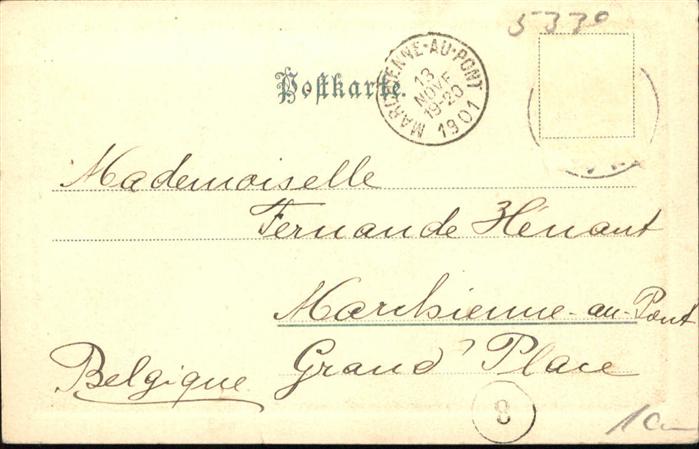 5330
Postkarte.
MARCHIENNE-AU-PONT
13
NOVE
19-20
1901
Mademoiselle
Fernande Hénant
Marchienne-au-Pont
Grand' Place
Belgique
8